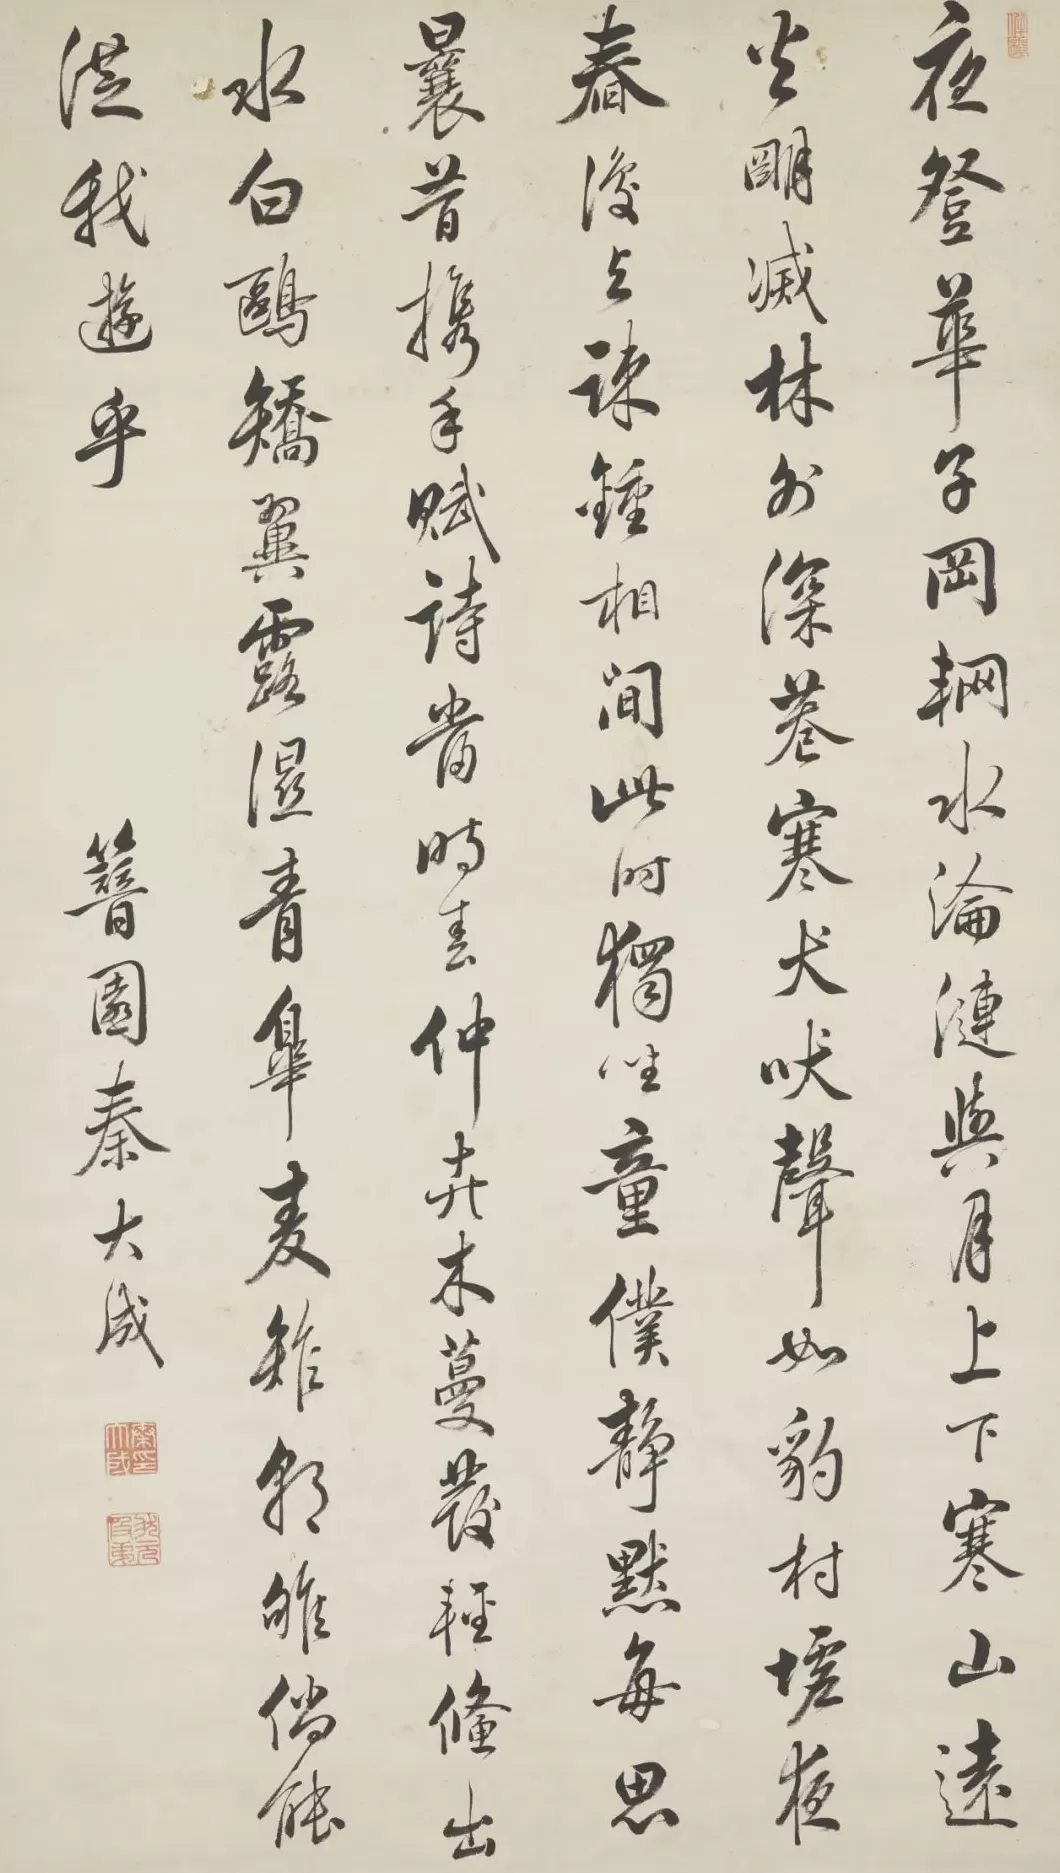 夜登華子岡輞水淪漣與月上下寒山遠
火明滅林外深巷寒犬吠聲如豹村墟夜
舂復與疎鍾相間此時獨坐童僕靜默每思
曩昔携手賦詩當時春仲卉木蔓發輕鯈出
水白鷗矯翼露濕青皋麥雉朝雊倘能
從我遊乎
簪園秦大成
秦印大成